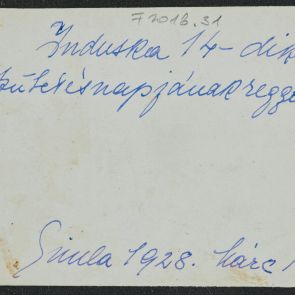 F 2016.31
Induska 14-dik
születésnapjának regge
Gyula 1928. Márc 1